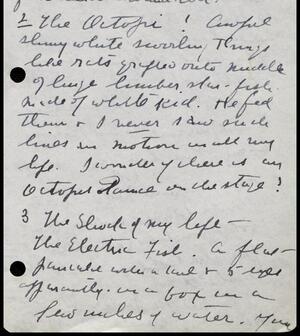 2 The Octopi! Awful
slimy white swirling things
like rats grafted onto middle
of huge limber star-fish
made of white kid. He fed
them & I never saw such
lines in motion in all my
life. I wonder if there is an
Octopus Dance on the stage?
3 The Shock of my life—
The Electric Fish. A flat
pancake with a tail & 5 eyes
apparently. in a box in a
few inches of water.